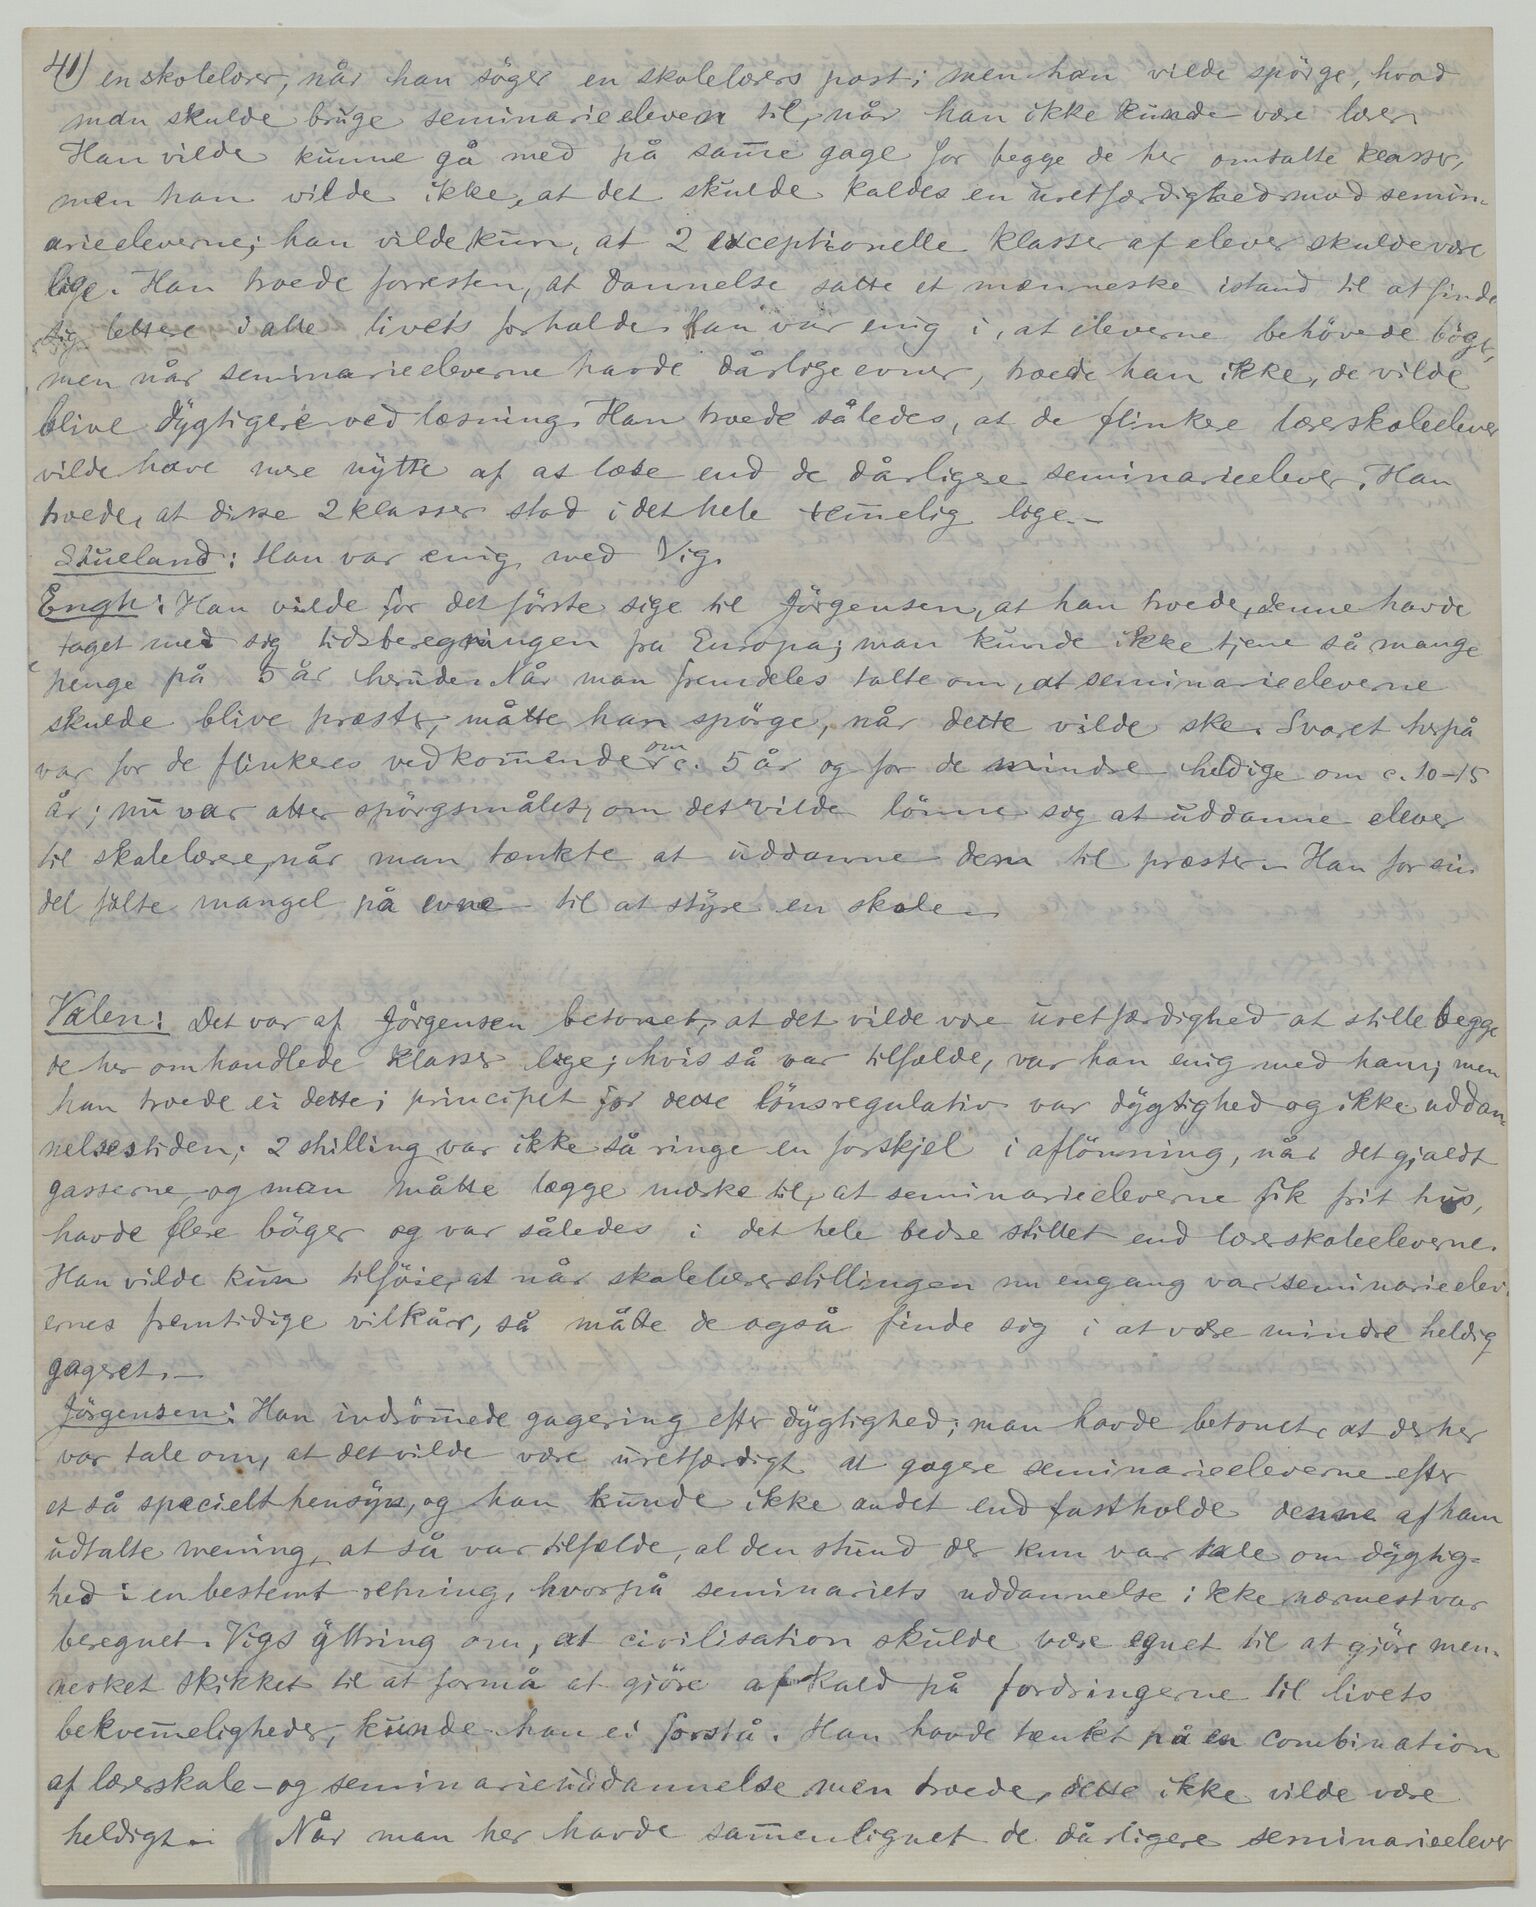 41) en skolelærer, når han söger en skolelærers post; men han vilde spörge, hvad
man skulde bruge seminarieeleven til, når han ikke kunde være lærer.
Han vilde kunne gå med på samme gage for begge de her omtalte klasser,
men han vilde ikke, at det skulde kaldes en uretfærdighed mod semin-
arieeleverne; han vilde kun, at 2 exceptionelle klasser af elever skulde være
lige. Han troede forresten, at dannelse satte et menneske istand til at finde
sig lettere i alle livets forholde. Han var enig i, at eleverne behövede böger,
men når seminarieeleverne havde dårlige evner, troede han ikke, de vilde
blive dygtigere ved læsning. Han troede således, at de flinkere lærerskoleelever
vilde have mere nytte af at læse end de dårligere seminarieelever. Han
troede, at disse 2 klasser stod i det hele temmelig lige. –
Stueland: Han var enig med Vig.
Engh: Han vilde for det förste sige til Jörgensen, at han troede, denne havde
taget med sig tidsberegningen fra Europa; man kunde ikke tjene så mange
penge på 5 år herude. Når man fremdeles talte om, at seminarieeleverne
skulde blive præster, måtte han spörge, når dette vilde ske. Svaret herpå
var for de flinkeres vedkommende om c. 5 år og for de mindre heldige om c. 10–15
år; nu var atter spörgsmålet, om det vilde lönne sig at uddanne elever
til skolelærere, når man tænkte at uddanne dem til præster. – Han for sin
del fölte mangel på evne til at styre en skole. –
Valen: Det var af Jörgensen betonet, at det vilde være uretfærdighed at stille begge
de her omhandlede klasser lige; hvis så var tilfælde, var han enig med ham; men
han troede ei dette; principet for dette lönsregulativ var dygtighed og ikke uddan-
nelsestiden; 2 shilling var ikke så ringe en forskjel i aflönning, når det gjaldt
gasserne, og man måtte lægge mærke til, at seminarieeleverne fik frit hus,
havde flere böger og var således i det hele bedre stillet end lærerskoleeleverne.
Han vilde kun tilföie, at når skolelærerstillingen nu engang var seminarieelev-
ernes fremtidige vilkår, så måtte de også finde sig i at være mindre heldig
gageret. –
Jörgensen: Han indrömmede gagering efter dygtighed; man havde betonet, at der her
var tale om, at det vilde være uretfærdigt at gagere seminarieeleverne efter
et så specielt hensyn, og han kunde ikke andet end fastholde denne af ham
udtalte mening, at så var tilfælde, al den stund der kun var tale om dygtig-
hed i en bestemt retning, hvorpå seminariets uddannelse ikke nærmest var
beregnet. Vigs yttring om, at civilisation skulde være egnet til at gjöre men-
nesket skikket til at formå at gjöre afkald på fordringerne til livets
bekvemmeligheder, kunde han ei forstå. Han havde tænkt på en combination
af lærerskole- og seminarieuddannelse men troede, dette ikke vilde være
heldigt. – Når man her havde sammenlignet de dårligere seminarieelever